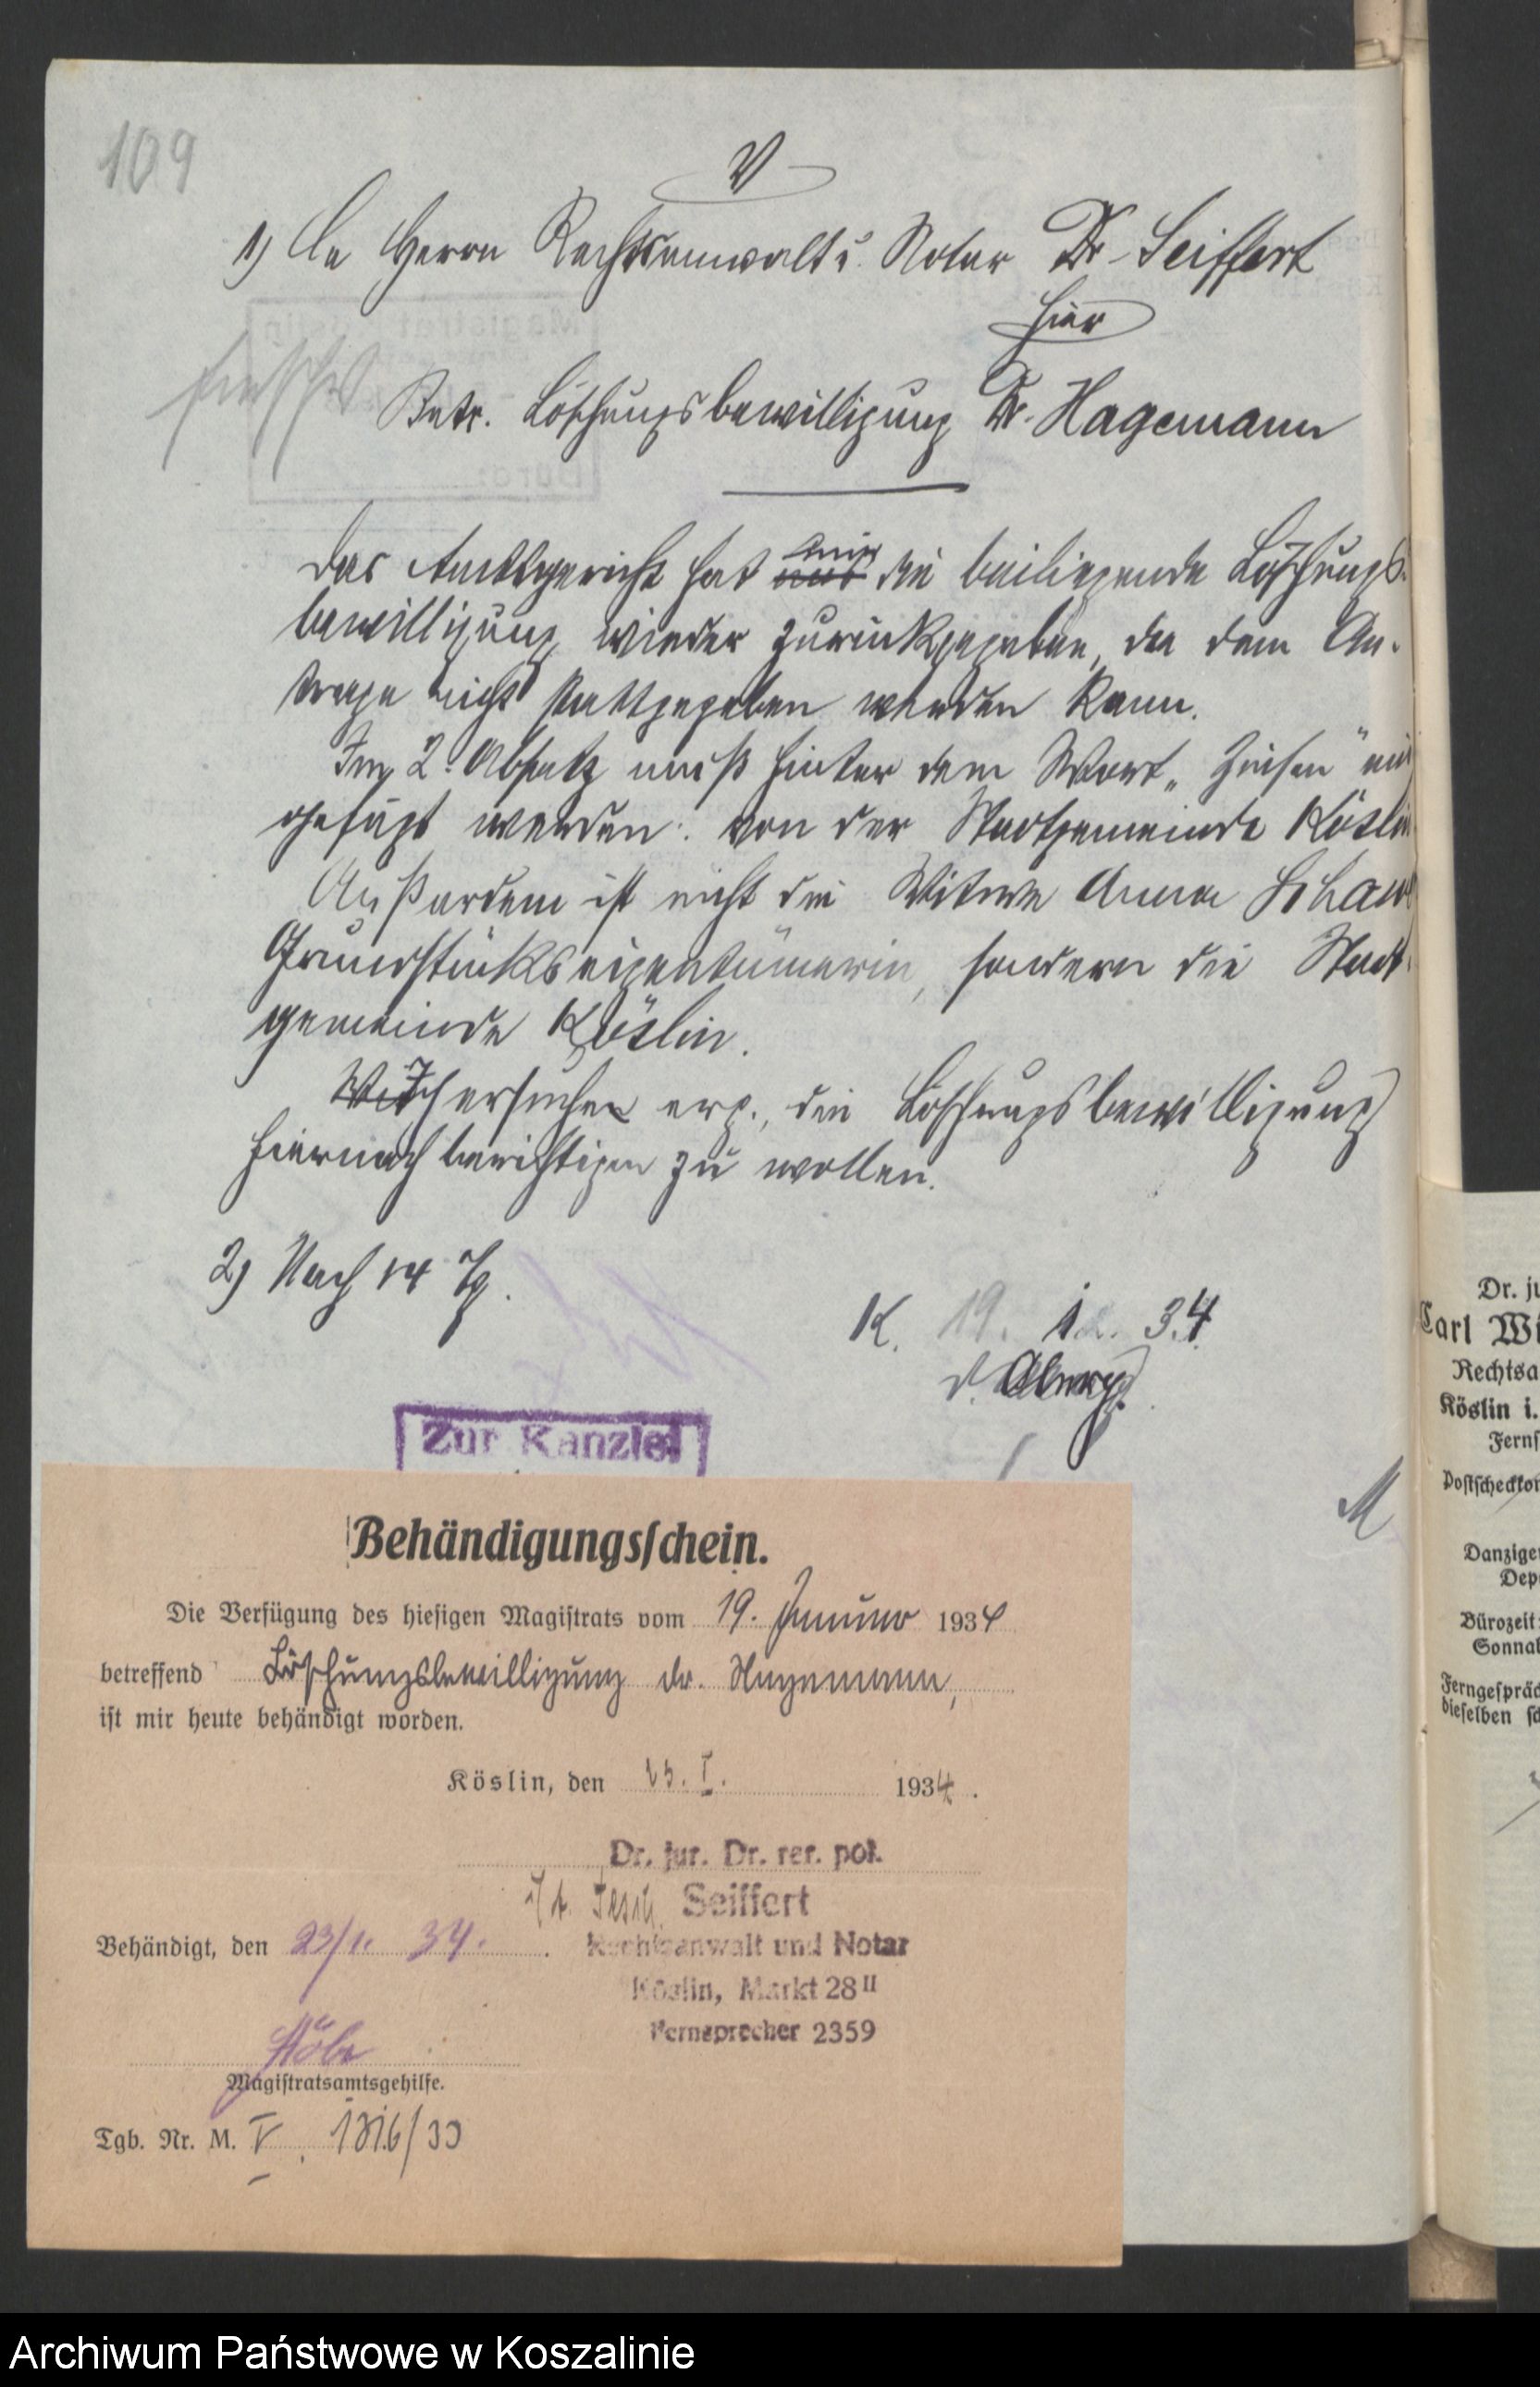 109
V
1) An Herrn Rechtsanwalt u. Notar Dr. Seiffert
hier
Betr. Löschungsbewilligung Dr. Hagemann
Das Amtsgericht hat mir die beiliegende Löschungs-
bewilligung wieder zurückgegeben, da dem An-
trage nicht stattgegeben werden kann.
Im 2. Absatz muß hinter dem Wort „Zinsen" ein
gefügt werden: von der Stadtgemeinde Köslin
Außerdem ist nicht die Witwe Anna
Grundstückseigentümerin, sondern die Stadt-
gemeinde Köslin.
Ich ersuche erg., die Löschungsbewilligung
hiernach berichtigen zu wollen.
2) Nach 14 Tg.
K. 19. 1. 34
Zur Kanzlei
M
Behändigungsschein.
Die Verfügung des hiesigen Magistrats vom 19. Januar 1934
betreffend Löschungsbewilligung Dr. Hagemann,
ist mir heute behändigt worden.
Köslin, den I. 1934.
Dr. jur. Dr. rer. pol.
Seiffert
Rechtsanwalt und Notar
Köslin, Markt 28 II
Fernsprecher 2359
Behändigt, den 23/1. 34.
Magistratsamtsgehilfe.
Tgb. Nr. M. V
Dr. ju
Carl Wi
Rechtsa
Köslin i.
Ferns
Postscheckkon
Danziger
Dep
Bürozeit:
Sonnab
Ferngespräc
dieselben sc
Archiwum Państwowe w Koszalinie